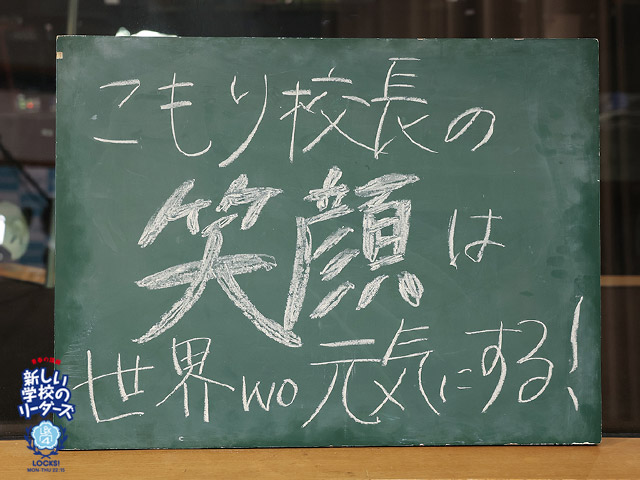 こもり校長の
笑顔は
世界wo元気にする!
新しい
学校の
リーダーズ
LOCKS!
MON-THU 22:15